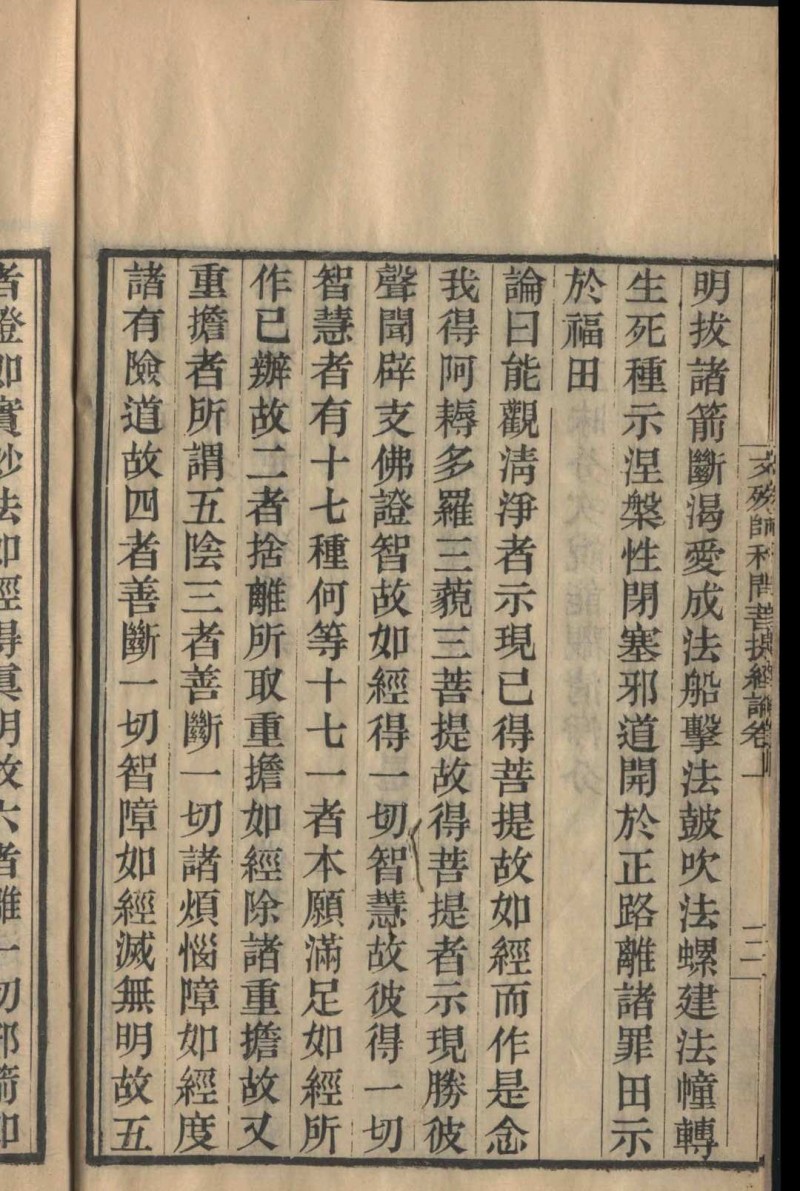 文殊師利問菩提經論卷一
明拔諸箭斷渴愛成法船擊法鼓吹法螺建法幢轉
生死種示涅槃性閉塞邪道開於正路離諸罪田示
於福田
論曰能觀清淨者示現已得菩提故如經而作是念
我得阿耨多羅三藐三菩提故得菩提者示現勝彼
聲聞辟支佛證智故如經得一切智慧故彼得一切
智慧者有十七種何等十七一者本願滿足如經所
作已辦故二者捨離所取重擔如經除諸重擔故又
重擔者所謂五陰三者善斷一切諸煩惱障如經度
諸有險道故四者善斷一切智障如經滅無明故五
者證如實妙法如經得眞明故六者離一切邪箭如